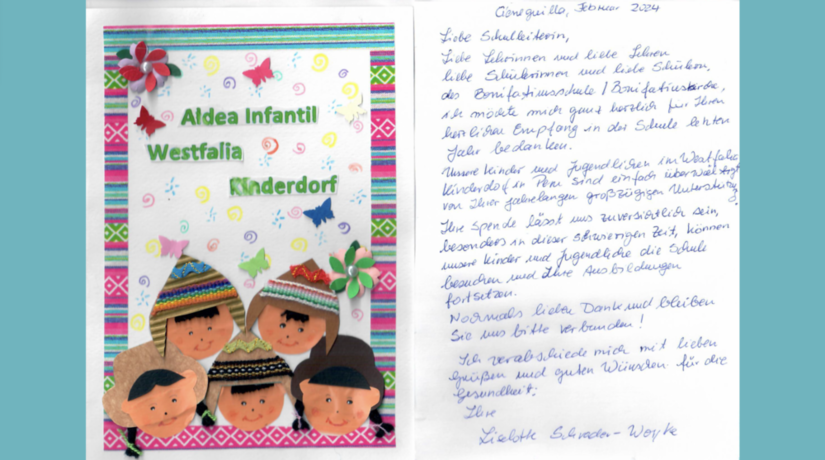 Aldea Infantil
Westfalia
Kinderdorf
Cieneguilla, Februar 2024
Liebe Schulleiterin,
Liebe Lehrerinnen und liebe Lehrer,
liebe Schülerinnen und liebe Schüler,
der Bonifatiusschule / Bonifatiuskirche,
ich möchte mich ganz herzlich für Ihren
herrlichen Empfang in der Schule letzten
Jahr bedanken.
Unsere Kinder und Jugendlichen im Westfalia
Kinderdorf in Peru sind einfach überwältigt
von Ihrer jahrelangen großzügigen Unterstützung
Ihre Spende lässt uns zuversichtlich sein,
besonders in dieser schwierigen Zeit, können
unsere Kinder und Jugendliche die Schule
besuchen und ihre Ausbildungen
fortsetzen.
Nochmals lieben Dank und bleiben
Sie uns bitte verbunden!
Ich verabschiede mich mit lieben
Grüßen und guten Wünschen für die
Gesundheit.
Ihre
Liselotte Schrader-Woyke